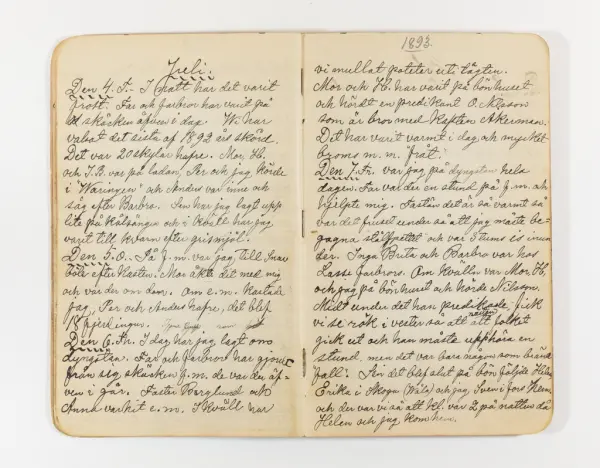 Juli.
Den 4. T.- I natt har det varit
frost. Far och farbror har varit på
skäcken äfven i dag. Vi har
det sista af 1892 års skörd.
Det var 20 skylar hafre. Mor, H.
och J.B. var på ladan, Per och jag körde
i Wäringen och Anders var inne och
såg efter Barbro. Sen har jag lagt upp
lite på Kålhängen och i kväll har jag
varit till kvarn efter grismjöl.
Den 5. O. Så f.m. var jag till Snar
böle efter Kasten. Mor åkte dit med mig
och var der om dom. Om e.m. kastade
jag, Per och Anders hafre, det blef
18 fjerdingar.
Den 6. Th. I dag har jag lagt om
Lyngstan. Far och farbror har gjort
från sig skäcken f.m. de var der äf-
ven i går. Faster Berglund och
Anna varhit e.m. I kväll har
1893.
vi mullat poteter uti tägten.
Mor och H. har varit på bönhuset
och hördt en predikant O. Nilsson
som är bror med Kapten Akerman.
Det har varit varmt i dag och mycket
broms m. m. "fråt."
Den 7. Fr. var jag på "Lyngstan" hela
dagen. Far var der en stund på f.m. och
hjelpte mig. Fastän det är så varmt så
var det fruset under så att jag måste be-
gagna och var 3 tums is inun
der. Inga Brita och Barbro var hos
Lasse farbrors. Om kvällen var Mor, H,
och jag på bönhuset och hörde Nilsson.
Midt under det han predikade, fick
vi se rök i vester så att nästan allt folket
gick ut och han måste upphöra en
stund, men det var bara någon som brände
"fall". Sen det blef slut på bön följde Helen
Erika i Skogn (Wåle) och jag Sven i Jons hem
och der var vi så att kl. var 2 på natten då
Helen och jag kom hem.